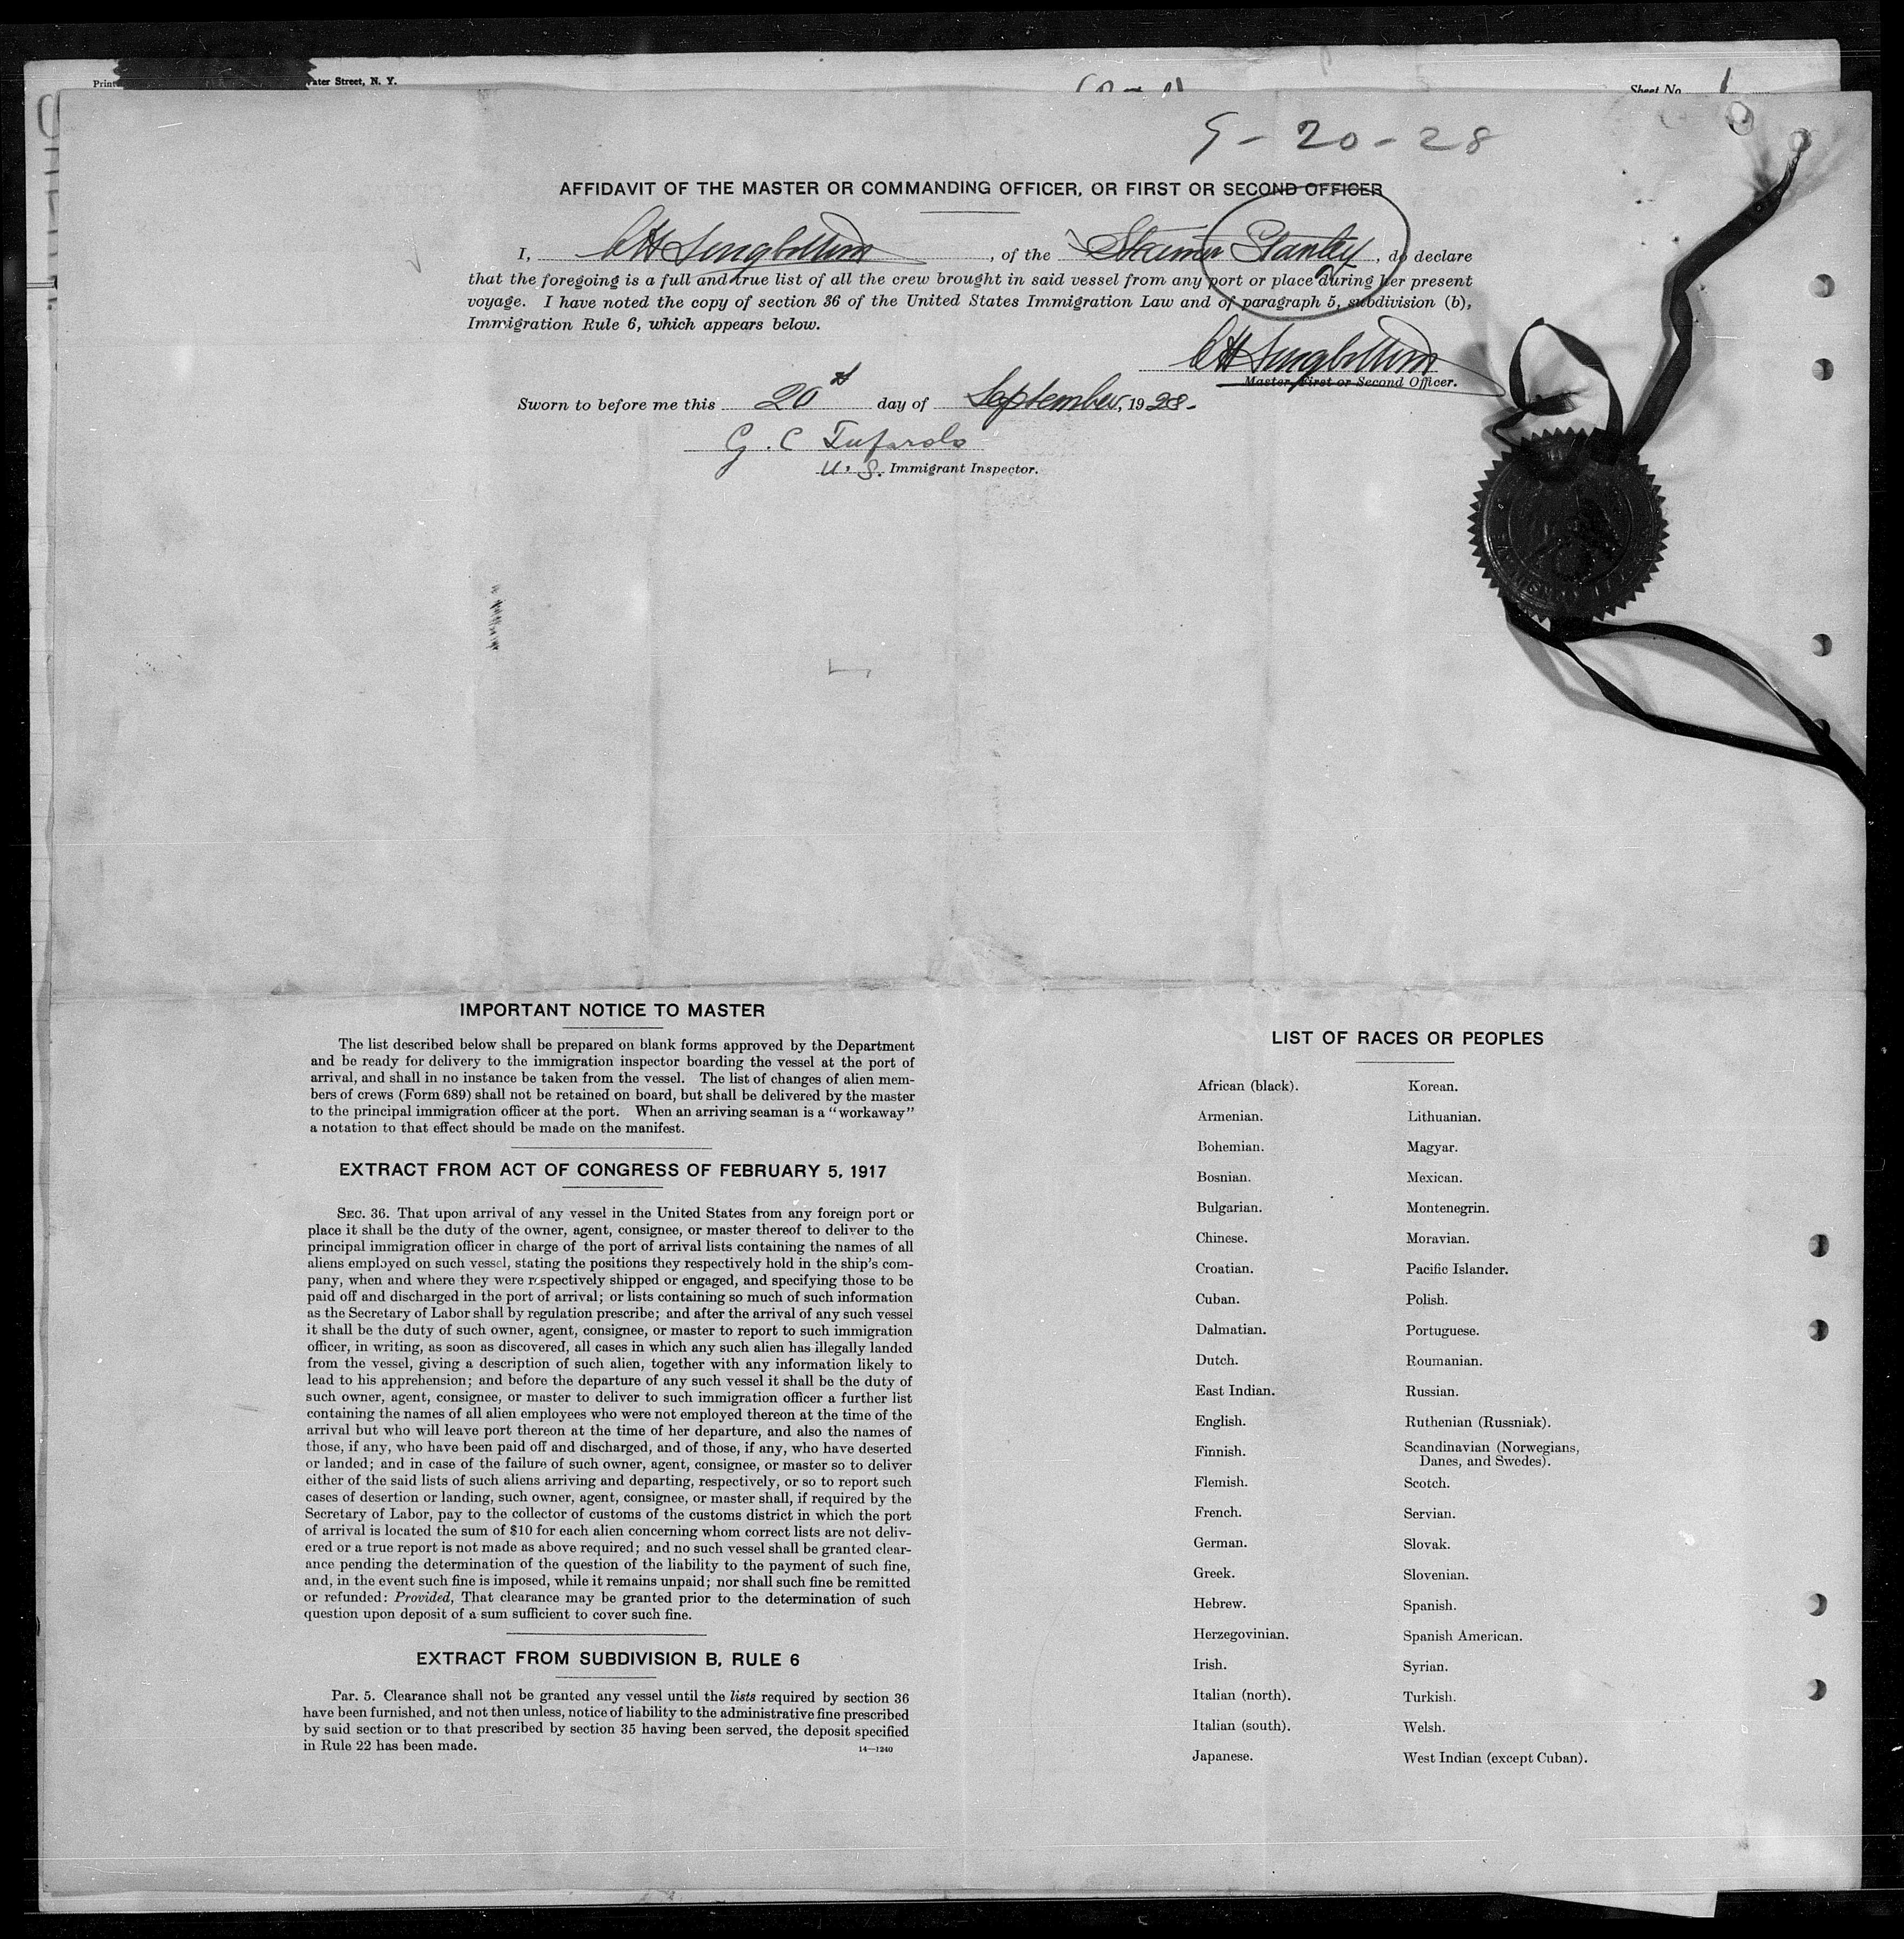 Water Street, N. Y.
Sheet No. 1
9-20-28
AFFIDAVIT OF THE MASTER OR COMMANDING OFFICER, OR FIRST OR SECOND OFFICER
I, , of the Steamer Stanley, do declare
that the foregoing is a full and true list of all the crew brought in said vessel from any port or place during her present
voyage. I have noted the copy of section 36 of the United States Immigration Law and of paragraph 5, subdivision (b),
Immigration Rule 6, which appears below.
Master, First or Second Officer.
Sworn to before me this 20th day of September, 1928.
G. C
U. S. Immigrant Inspector.
IMPORTANT NOTICE TO MASTER
The list described below shall be prepared on blank forms approved by the Department
and be ready for delivery to the immigration inspector boarding the vessel at the port of
arrival, and shall in no instance be taken from the vessel. The list of changes of alien mem-
bers of crews (Form 689) shall not be retained on board, but shall be delivered by the master
to the principal immigration officer at the port. When an arriving seaman is a "workaway"
a notation to that effect should be made on the manifest.
EXTRACT FROM ACT OF CONGRESS OF FEBRUARY 5, 1917
SEC. 36. That upon arrival of any vessel in the United States from any foreign port or
place it shall be the duty of the owner, agent, consignee, or master thereof to deliver to the
principal immigration officer in charge of the port of arrival lists containing the names of all
aliens employed on such vessel, stating the positions they respectively hold in the ship's com-
pany, when and where they were respectively shipped or engaged, and specifying those to be
paid off and discharged in the port of arrival; or lists containing so much of such information
as the Secretary of Labor shall by regulation prescribe; and after the arrival of any such vessel
it shall be the duty of such owner, agent, consignee, or master to report to such immigration
officer, in writing, as soon as discovered, all cases in which any such alien has illegally landed
from the vessel, giving a description of such alien, together with any information likely to
lead to his apprehension; and before the departure of any such vessel it shall be the duty of
such owner, agent, consignee, or master to deliver to such immigration officer a further list
containing the names of all alien employees who were not employed thereon at the time of the
arrival but who will leave port thereon at the time of her departure, and also the names of
those, if any, who have been paid off and discharged, and of those, if any, who have deserted
or landed; and in case of the failure of such owner, agent, consignee, or master so to deliver
either of the said lists of such aliens arriving and departing, respectively, or so to report such
cases of desertion or landing, such owner, agent, consignee, or master shall, if required by the
Secretary of Labor, pay to the collector of customs of the customs district in which the port
of arrival is located the sum of $10 for each alien concerning whom correct lists are not deliv-
ered or a true report is not made as above required; and no such vessel shall be granted clear-
ance pending the determination of the question of the liability to the payment of such fine,
and, in the event such fine is imposed, while it remains unpaid; nor shall such fine be remitted
or refunded: Provided, That clearance may be granted prior to the determination of such
question upon deposit of a sum sufficient to cover such fine.
EXTRACT FROM SUBDIVISION B, RULE 6
Par. 5. Clearance shall not be granted any vessel until the lists required by section 36
have been furnished, and not then unless, notice of liability to the administrative fine prescribed
by said section or to that prescribed by section 35 having been served, the deposit specified
in Rule 22 has been made.
14—1240
LIST OF RACES OR PEOPLES
African (black).
Armenian.
Bohemian.
Bosnian.
Bulgarian.
Chinese.
Croatian.
Cuban.
Dalmatian.
Dutch.
East Indian.
English.
Finnish.
Flemish.
French.
German.
Greek.
Hebrew.
Herzegovinian.
Irish.
Italian (north).
Italian (south).
Japanese.
Korean.
Lithuanian.
Magyar.
Mexican.
Montenegrin.
Moravian.
Pacific Islander.
Polish.
Portuguese.
Roumanian.
Russian.
Ruthenian (Russniak).
Scandinavian (Norwegians,
Danes, and Swedes).
Scotch.
Servian.
Slovak.
Slovenian.
Spanish.
Spanish American.
Syrian.
Turkish.
Welsh.
West Indian (except Cuban).